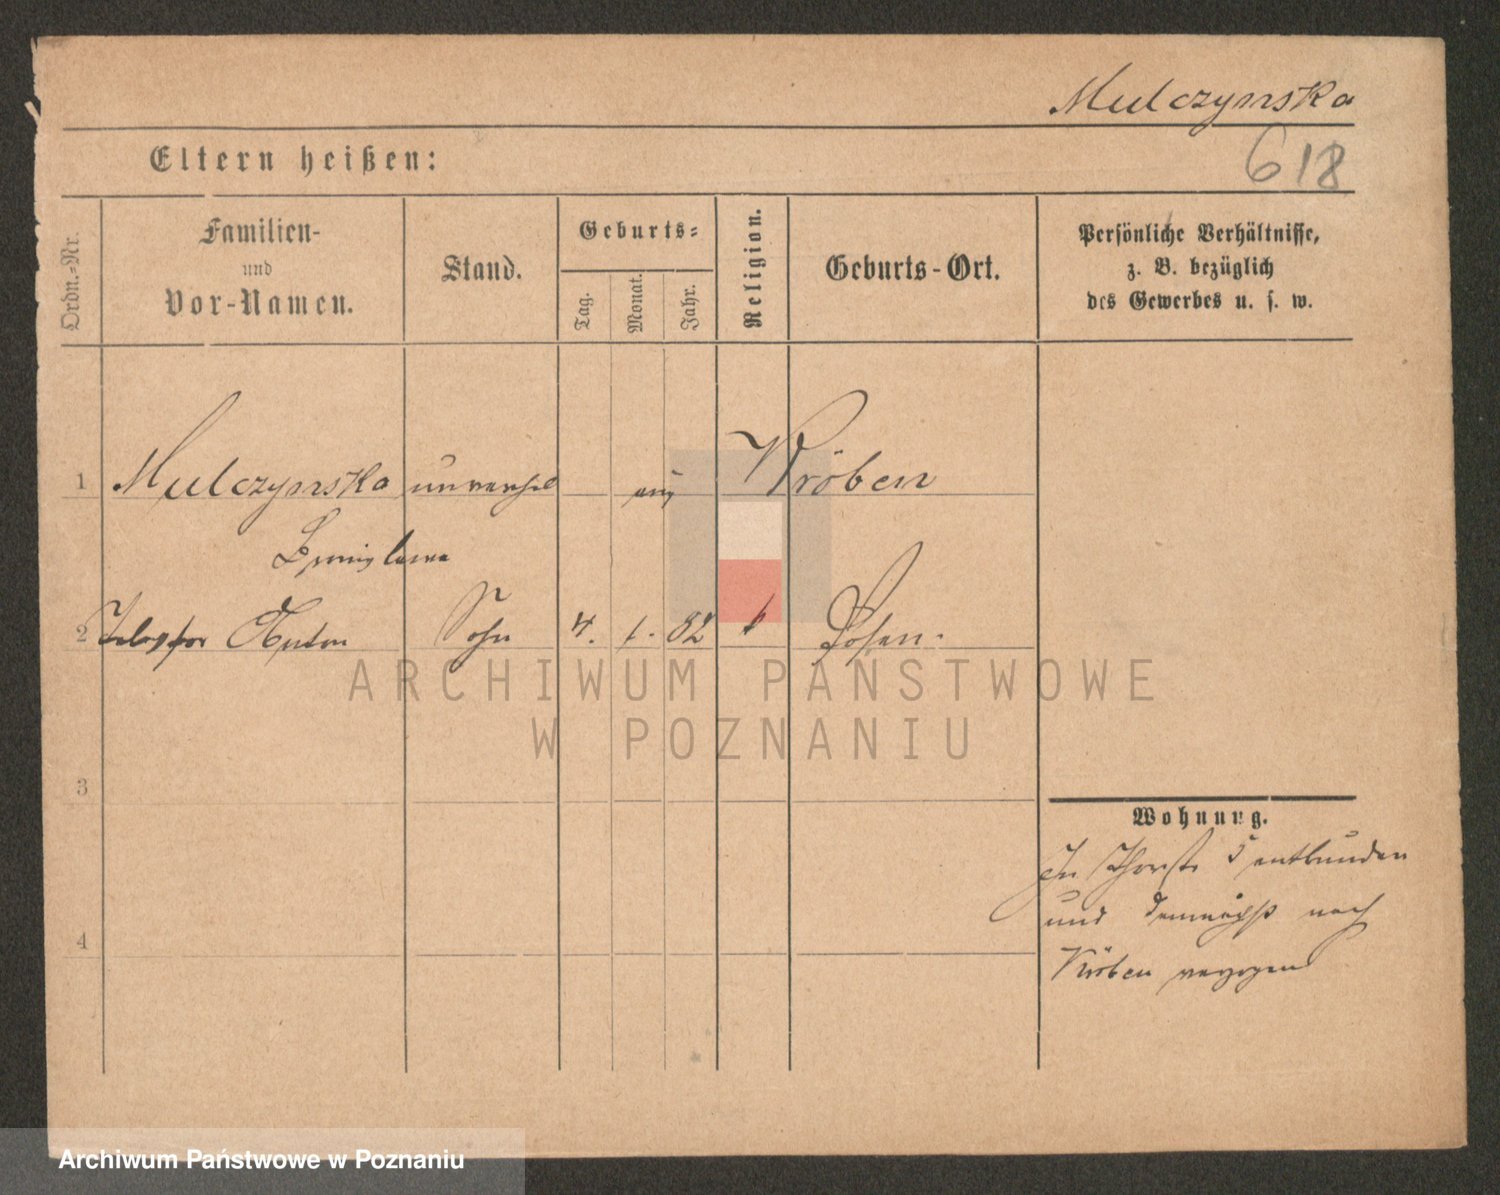 Mulczynska
618
Eltern heißen:
Ordn.-Nr.
Familien-
und
Vor-Namen.
Stand.
Geburts-
Tag.
Monat.
Jahr.
Religion.
Geburts-Ort.
Persönliche Verhältnisse,
z. B. bezüglich
des Gewerbes u. s. w.
1 Mulczynska unverehel aus Kröben
Bronislawa
2 Anton Sohn 4. 1. 82 k Posen.
ARCHIWUM PAŃSTWOWE
W POZNANIU
3
4
Wohnung.
In Thorstr 5 entbunden
und demnächst nach
Kröben verzogen
Archiwum Państwowe w Poznaniu